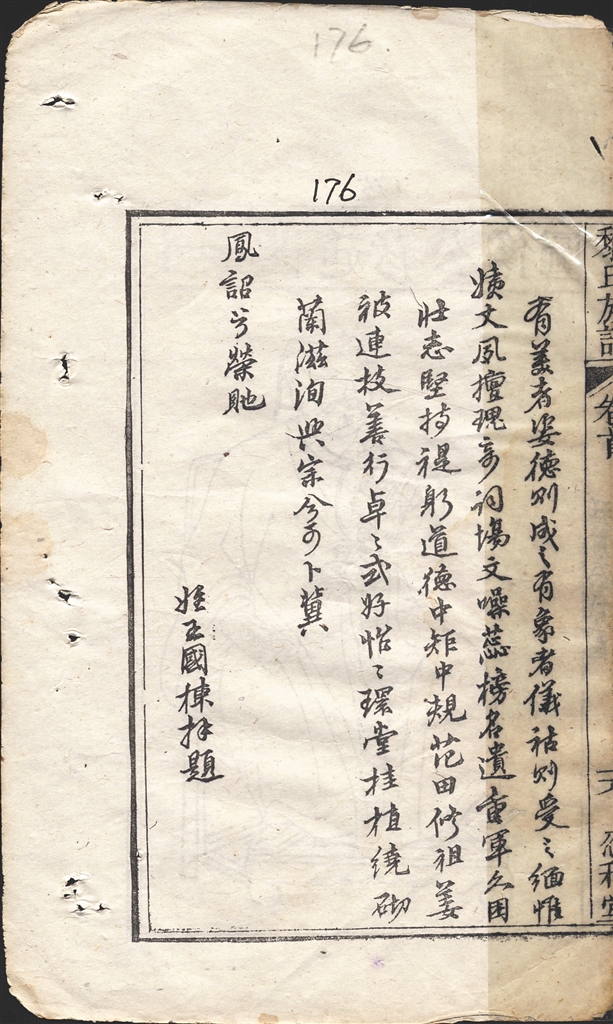 176
176
有美者姿德則成〻有象者儀祜則受〻緬惟
姨文夙擅瑰奇詞場文噪蕊榜名遺重軍久困
壯志堅持禔躬道德中矩中規范田修祖姜
被連枝善行卓〻式好怡〻環堂桂植繞砌
蘭滋洵興宗兮可卜冀
鳳詔兮榮貤
姪王國棟拜題
氏族譜
卷首